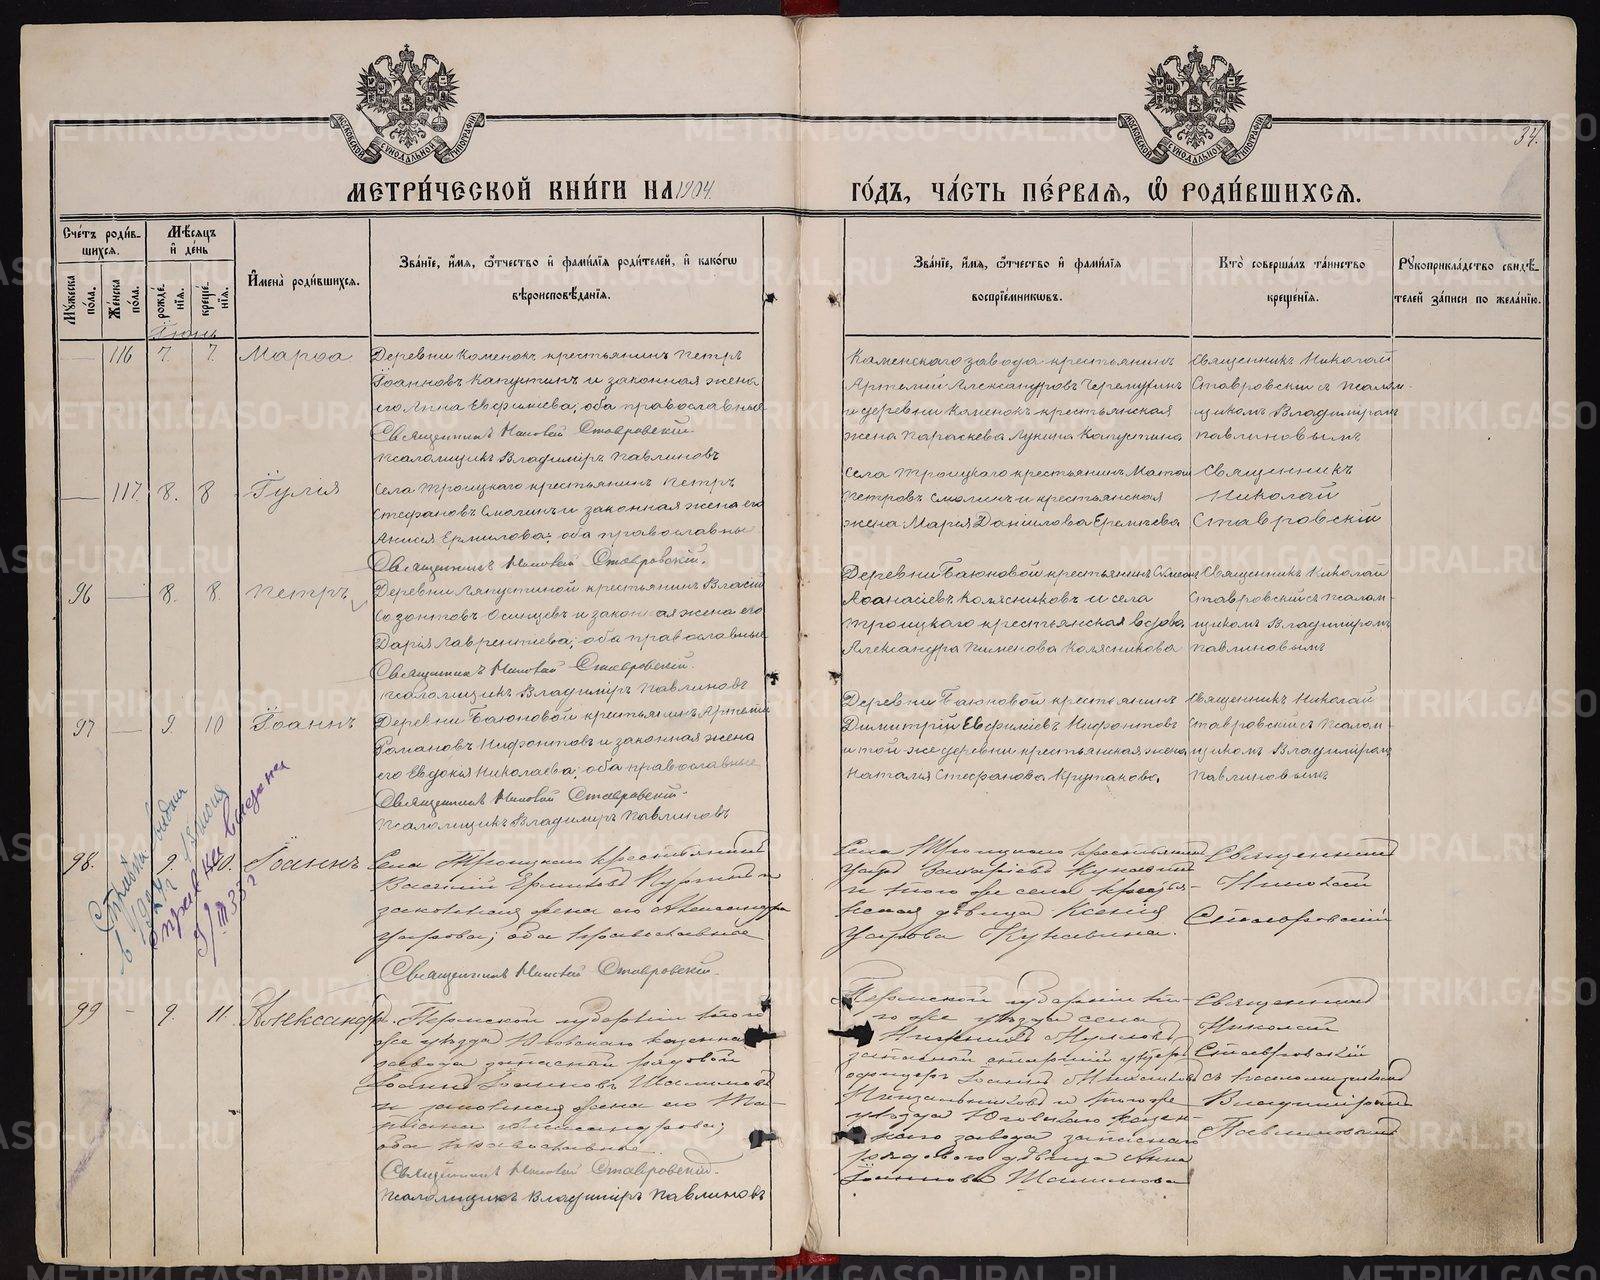 МЕТРИ́ЧЕСКОЙ КНИ́ГИ НА 1904 ГО́ДЪ, ЧА́СТЬ ПЕ́РВАЯ, Ѡ РОДИ́ВШИХСЯ.
34.
МОСКОВСКОЙ СѴНОДАЛЬНОЙ ТИПОГРАФІИ
МОСКОВСКОЙ СѴНОДАЛЬНОЙ ТИПОГРАФІИ
Сче́тъ роди́в-
шихся.
Му́жеска по́ла.
Же́нска по́ла.
Мѣ́сяцъ и де́нь
рожде́нїя.
креще́нїя.
Имена̀ роди́вшихся.
Зва́нїе, и́мя, ѻ҆́тчество и фами́лїя роди́телей, и како́гѡ
вѣроисповѣ́данїя.
Зва́нїе, и́мя, ѻ҆́тчество и фами́лїя
воспрїе́мниковъ.
Кто̀ соверша́лъ та́инство
креще́нїя.
Рукоприкла́дство свидѣ́-
телей за́писи по жела́нїю.
Іюнь
116 7. 7. Марѳа
Деревни Каменокъ крестьянинъ Петръ
Іоанновъ Капустинъ и законная жена
его Анна Евфимиева; оба православные
Священникъ Николай Ставровскій.
Псаломщикъ Владиміръ Павлиновъ
Каменскаго завода крестьянинъ
Артемий Александровъ
и деревни Каменокъ крестьянская
жена Параскева Лукина Капустина
Священникъ Николай
Ставровскій съ псалом-
щикомъ Владимиромъ
Павлиновымъ
117. 8. 8 Іулія
Села Троицкаго крестьянинъ Петръ
Стефановъ Смолинъ и законная жена его
Анисія Ермилова; оба православны
Священникъ Николай Ставровскій.
Села Троицкаго крестьянинъ
Петровъ Смолинъ и крестьянская
жена Марія Даніилова Еремеева
Священникъ
Николай
Ставровскій
96 8. 8. Петръ
Деревни Ляпустиной крестьянинъ Власій
Созонтовъ Осинцевъ и законная жена его
Дарія Лаврентиева; оба православные
Священникъ Николай Ставровскій.
Псаломщикъ Владиміръ Павлиновъ
Деревни Баюновой крестьянинъ
Аѳанасіевъ Колясниковъ и села
Троицкаго крестьянская вдова
Александра Пименова Колясникова
Священникъ Николай
Ставровскій съ псалом-
щикомъ Владимиромъ
Павлиновымъ
97 9. 10 Іоаннъ
Деревни Баюновой крестьянинъ Артемій
Романовъ Нифонтовъ и законная жена
его Евдокія Николаева; оба православные
Священникъ Николай Ставровскій.
Псаломщикъ Владиміръ Павлиновъ
Деревни Баюновой крестьянинъ
Димитрій Евфиміевъ Нифонтовъ
и той же деревни крестьянская жена
Наталья Стефанова
Священникъ Николай
Ставровскій съ псалом-
щикомъ Владимиромъ
Павлиновымъ
98. 9. 10. Іоаннъ
Справка выдана
Села Троицкаго крестьянинъ
Василій Ермиловъ и
законная жена его Александра
оба православные
Священникъ Николай Ставровскій.
Села Троицкаго крестьянинъ
и того же села крестья-
нская дѣвица Ксенія
Священникъ
Николай
Ставровскій
99 9. 11. Александръ
Пермской губерніи того
же уѣзда Юговскаго казеннаго
завода запасный рядовой
Іоаннъ Іоанновъ
и законная жена его Ма-
Александрова;
оба православные
Священникъ Николай Ставровскій.
Псаломщикъ Владиміръ Павлиновъ
Пермской губерніи то-
го же уѣзда села
запасный старшій унтеръ
офицеръ Іоаннъ
и того же
уѣзда Юговскаго казен-
наго завода запаснаго
рядового дѣвица Анна
Іоаннова
Священникъ
Николай
Ставровскій
съ псаломщикомъ
Владимиромъ
Павлиновымъ
METRIKI.GASO-URAL.RU